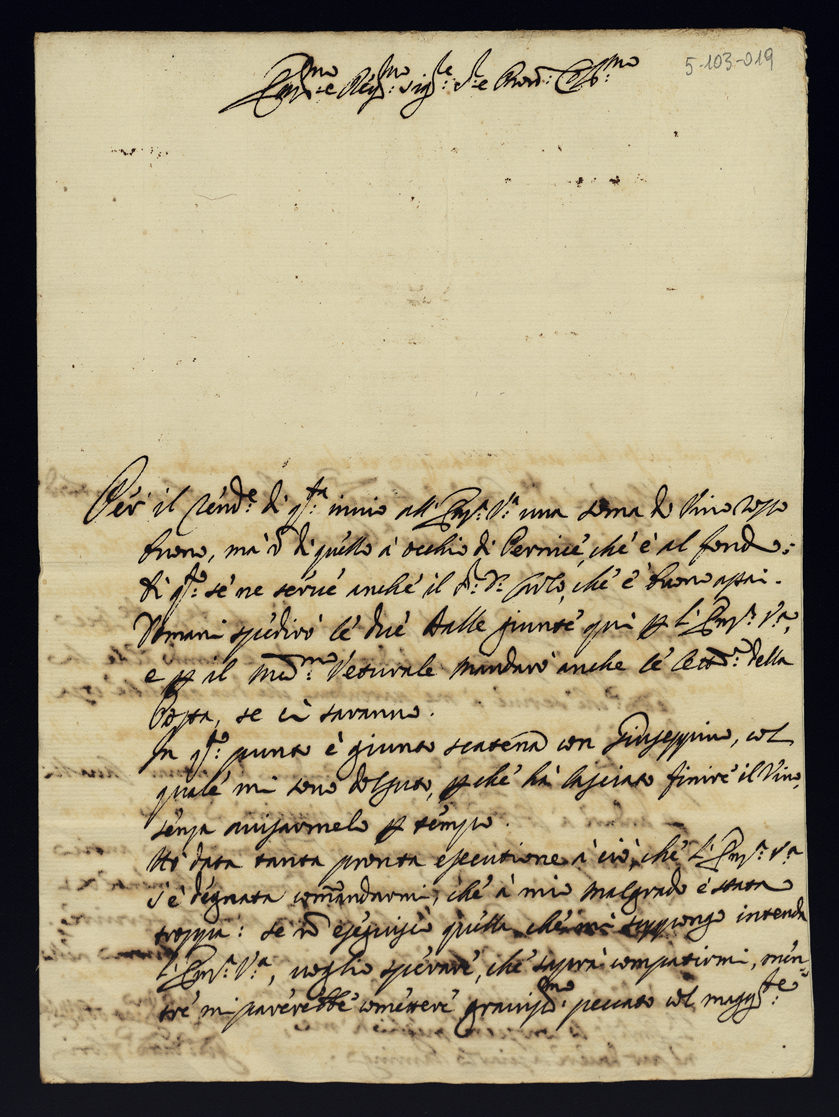 5-103-019
Em:mo e Re:mo Sig:re S:re e Pron: Col:mo
Per il rend:e di q:ta inuio all'Em:a V:a una soma di Vino rosso
buono, mà nõ di quello à occhio di Pernice, che è al fondo:
di q:to se ne serue anche il S:r D: Carlo, che è buono assai.
Domani spedirò le due Balle giunte quì p L'Em:a V:a,
e p il med:mo Vetturale mandarò anche le lett:re della
Posta, se ci saranno.
In q:to punto è giunto scatena con Giuseppino, col
quale mi sono doluto, p che hà lasciato finire il Vino,
senza auisarmelo p tempo.
Hò data tanta pronta essecutione à ciò, che L'Em:a V:a
s'è degnata comandarmi, che à mio malgrado è stata
troppa: se nõ eseguisco quella che mi suppongo intenda
L'Em:a V:a, uoglio sperare, che saprà compatirmi, men=
tre mi parerebbe comettere grauiss:mo peccato col magg:re